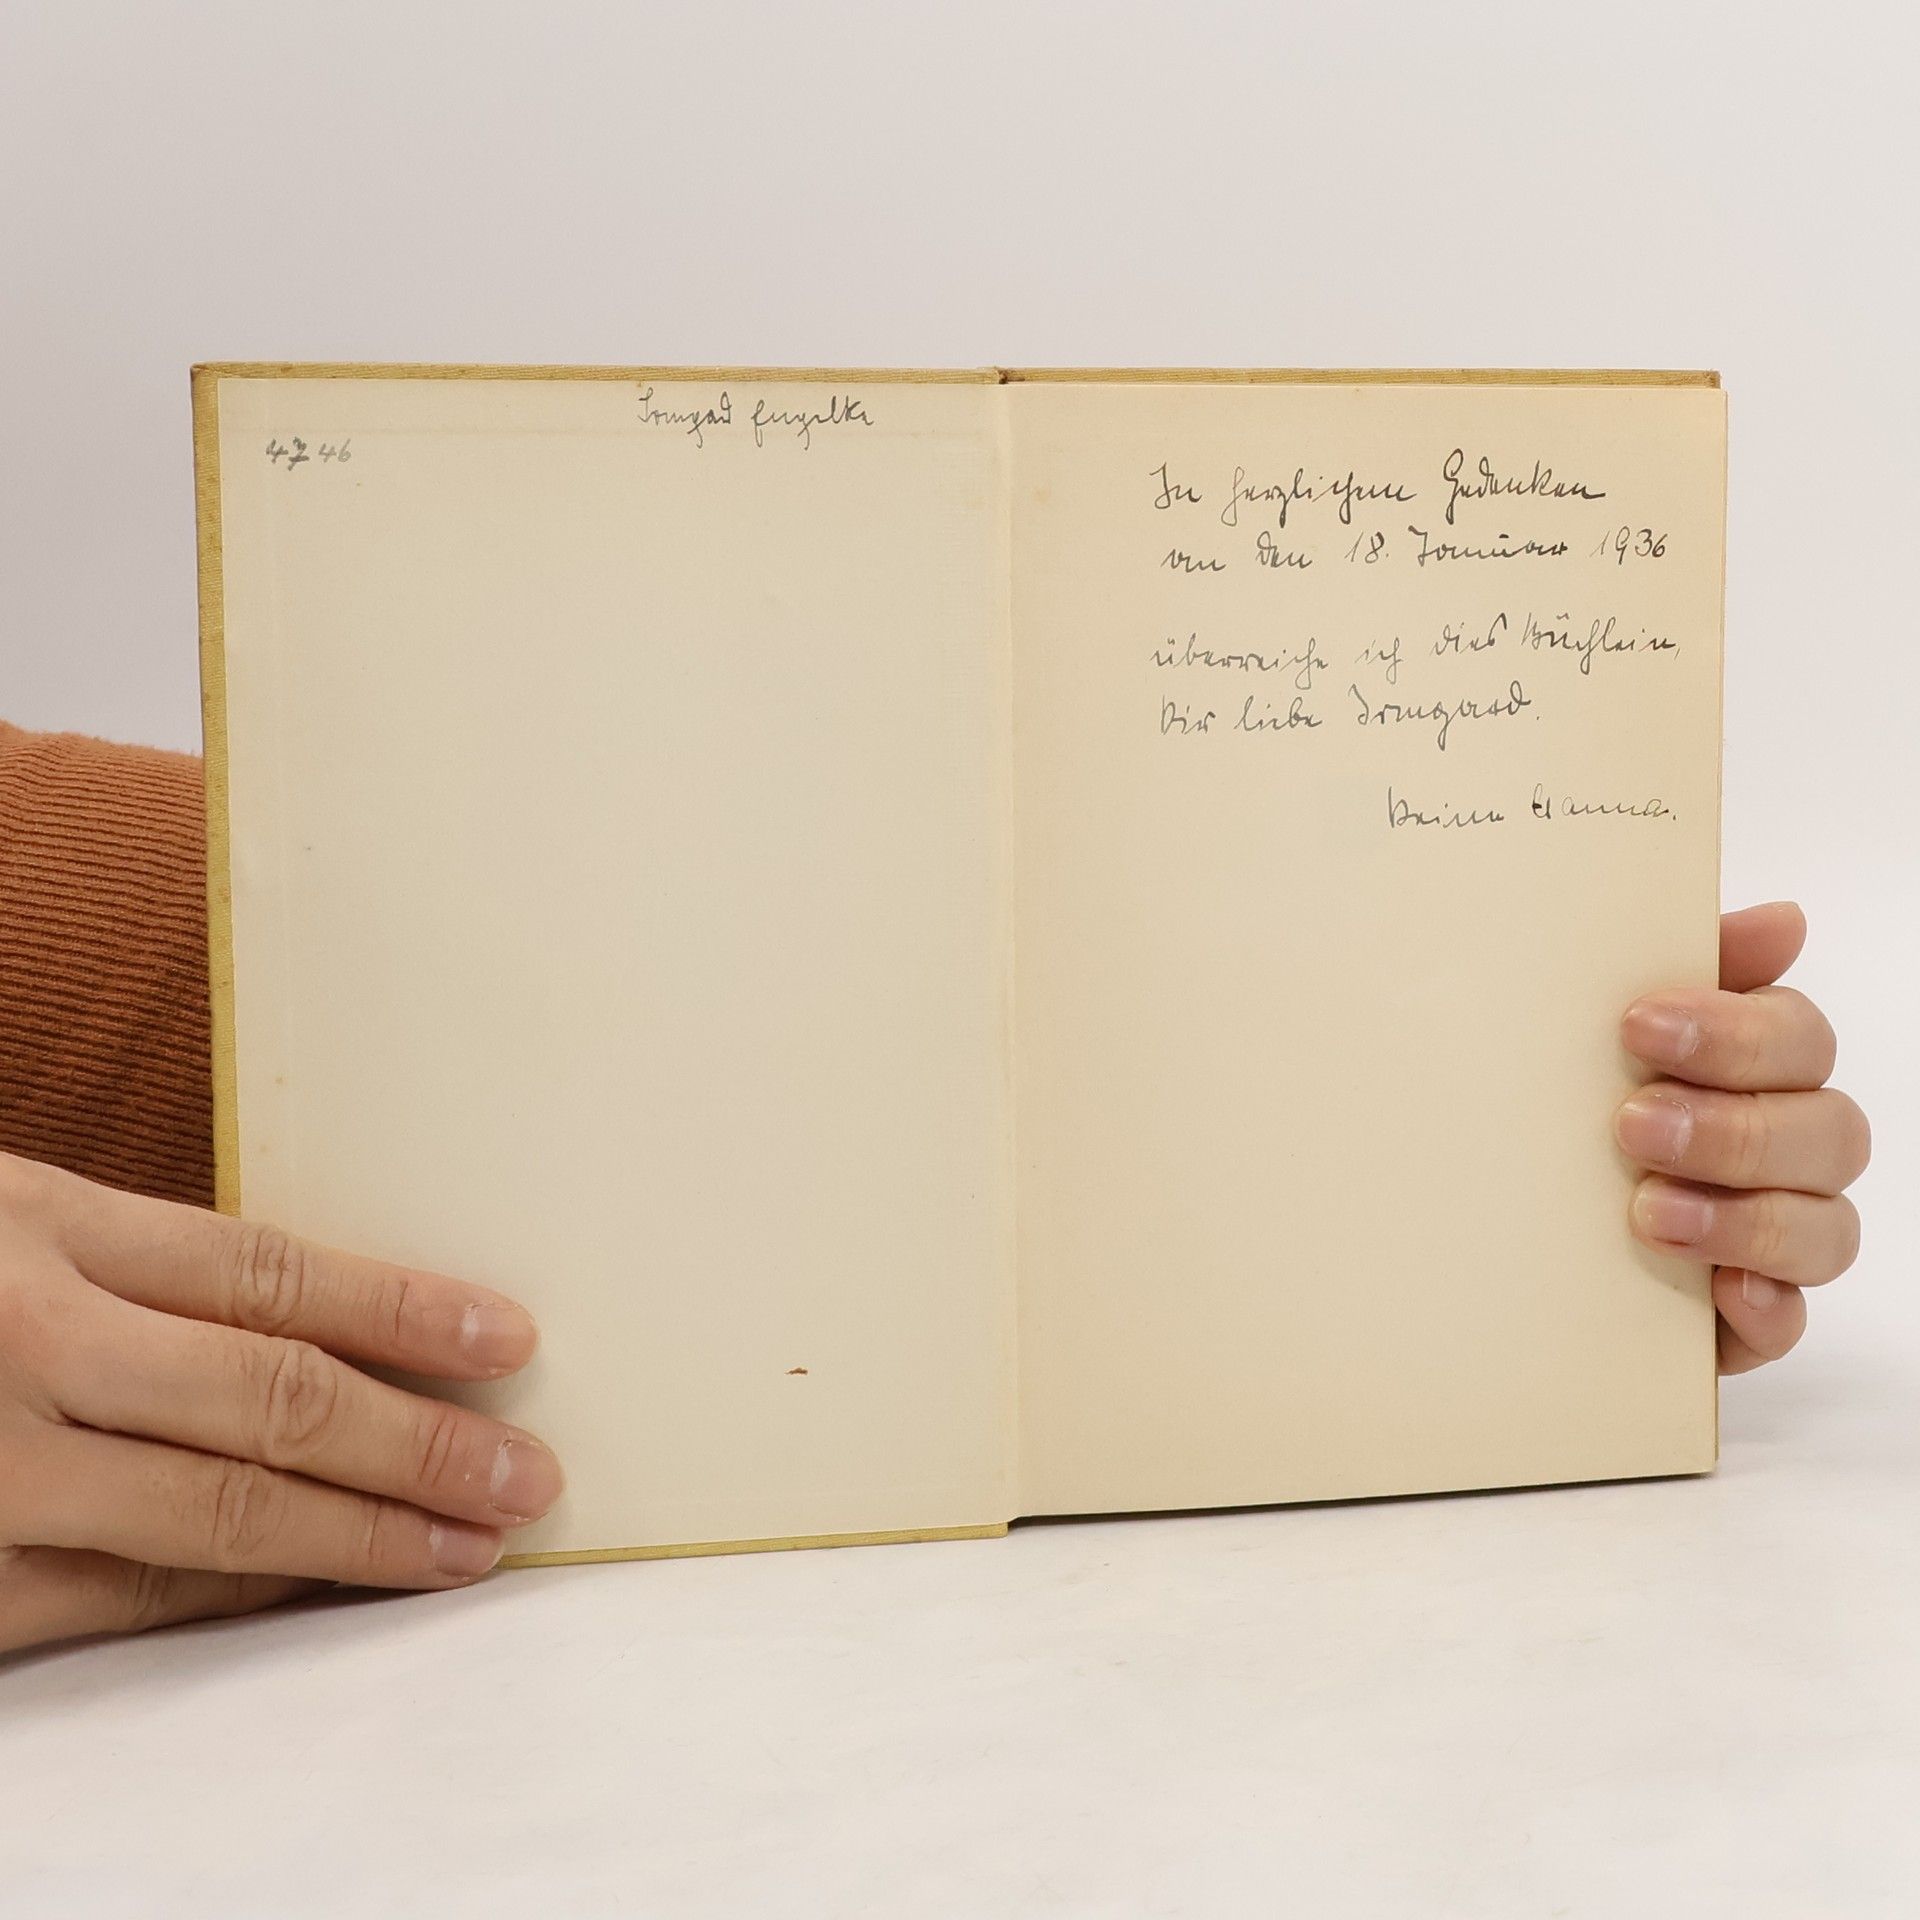 Irmgard Engelke
4746
In herzlichem Gedenken
an den 18. Januar 1936
überreiche ich dies Büchlein,
Dir liebe Irmgard.
Deine Hanna.